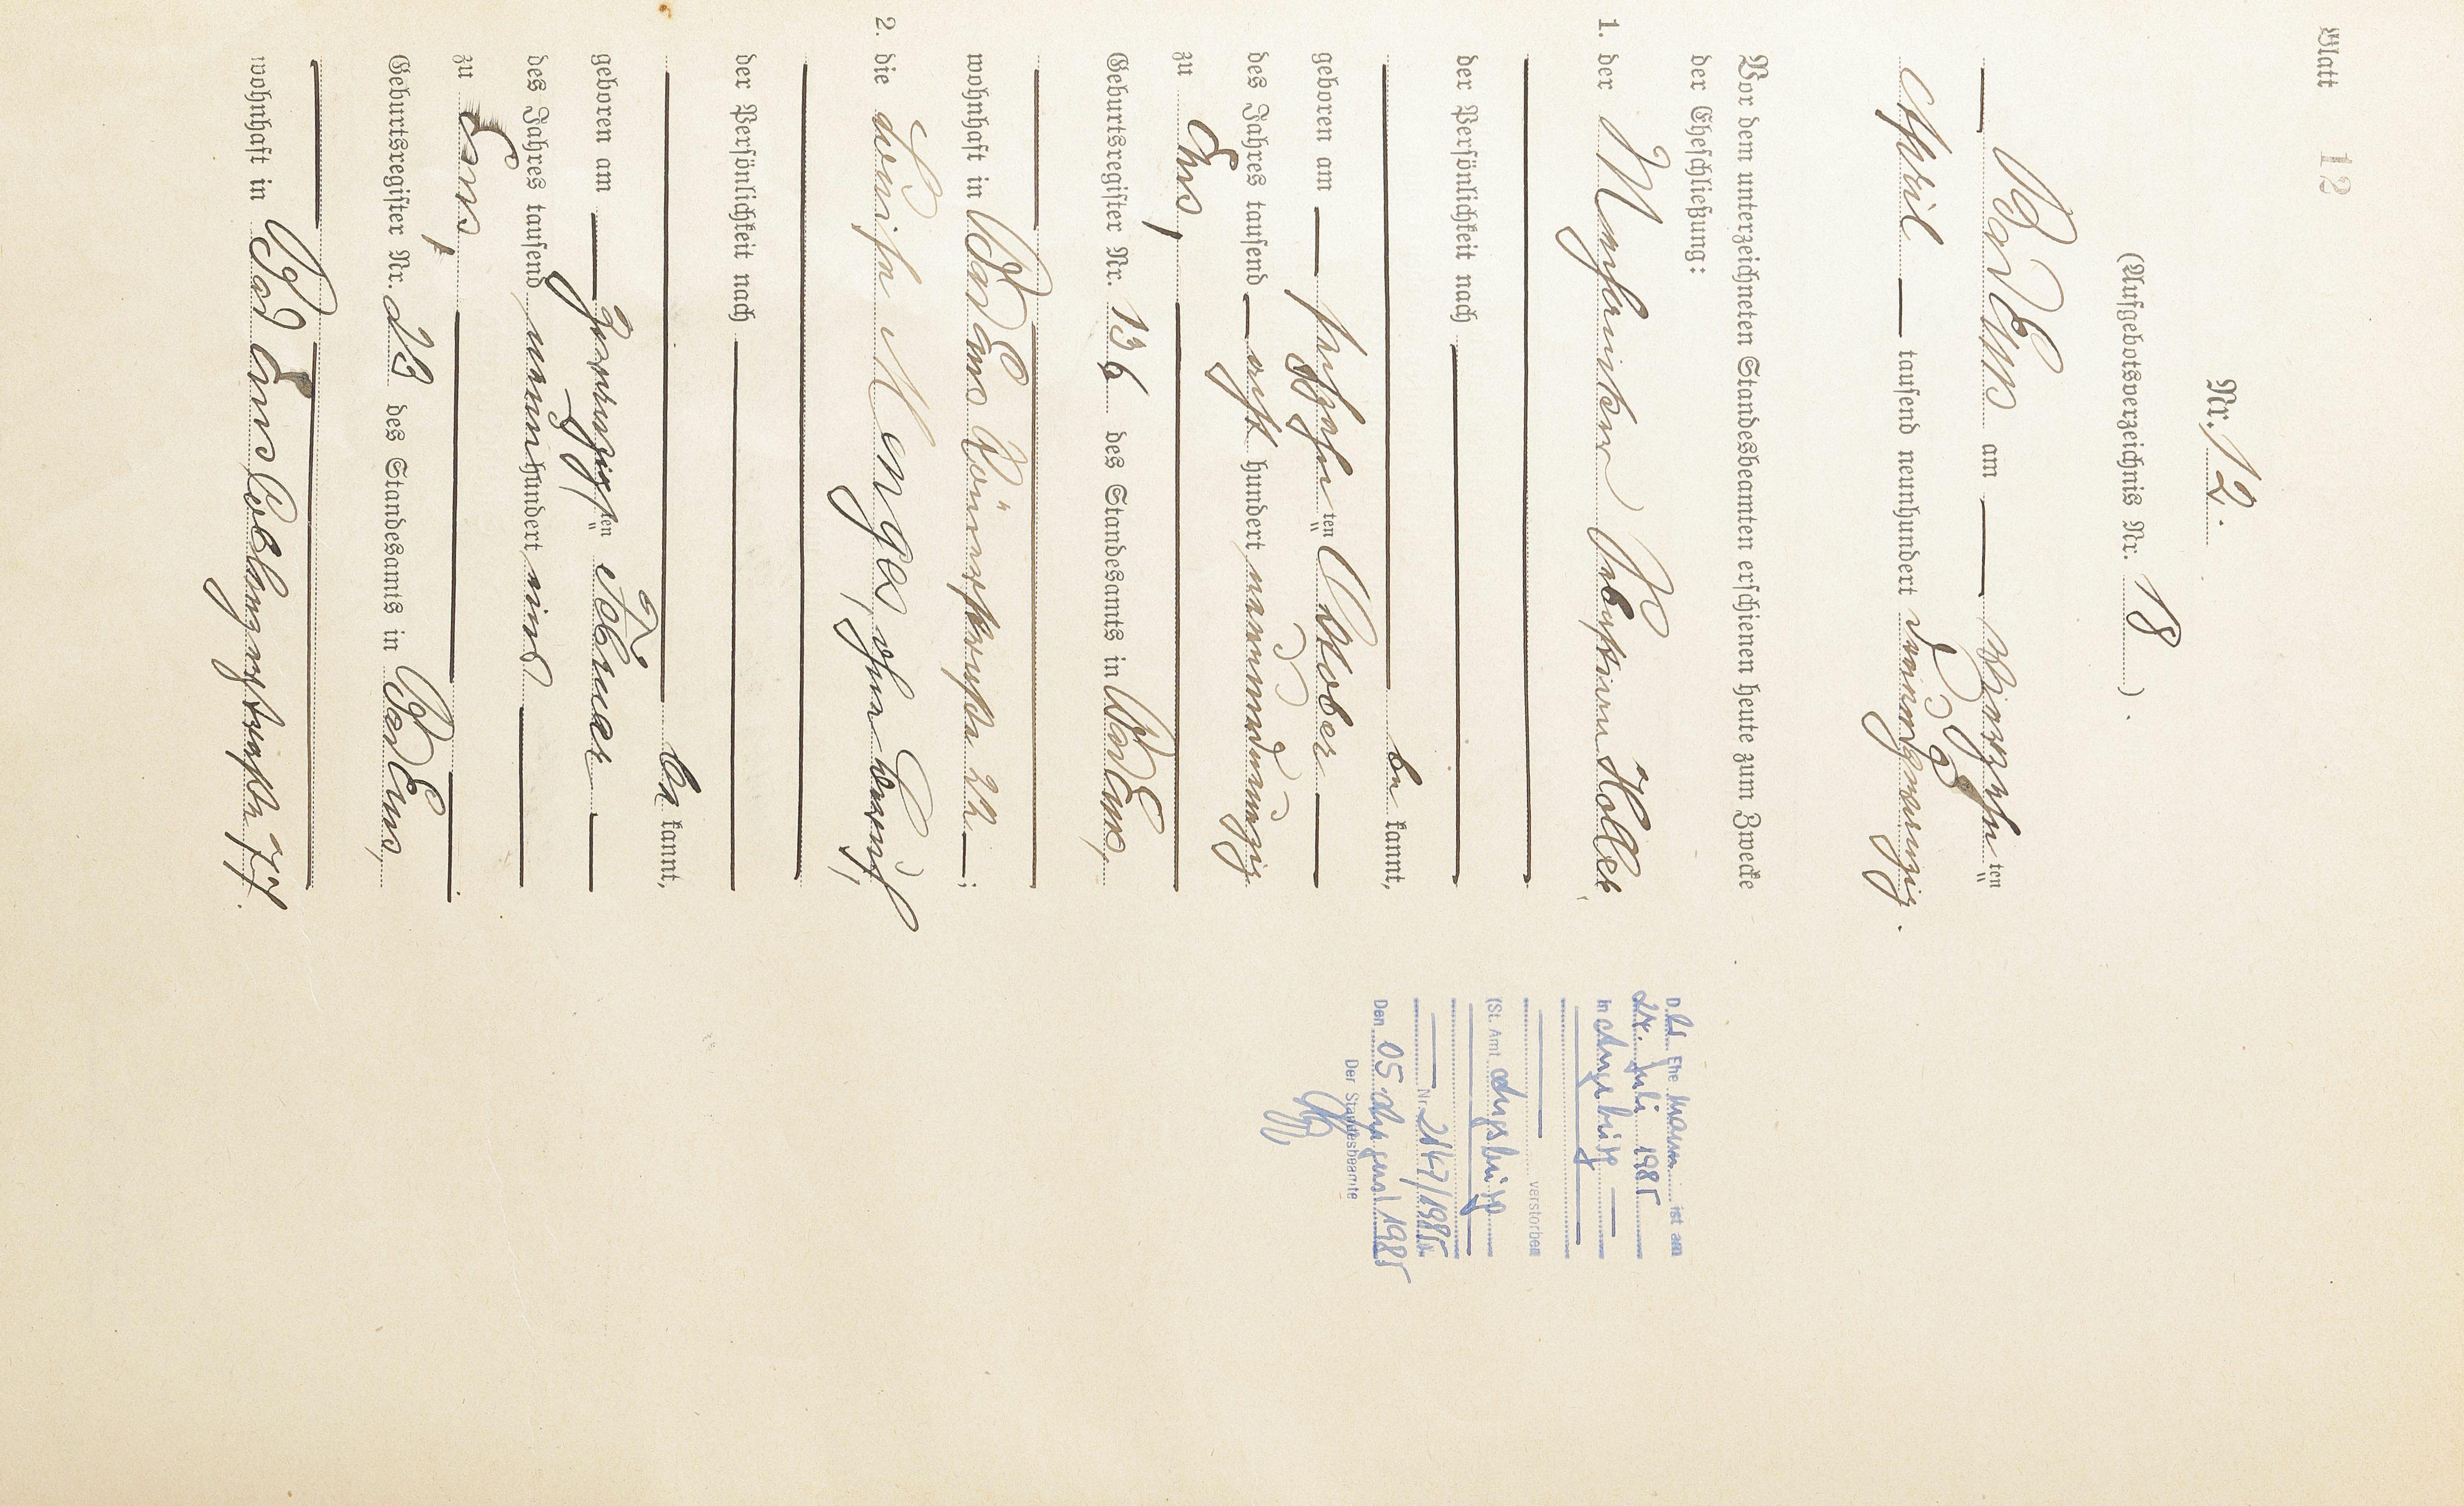 Blatt 12
Nr. 12.
(Aufgebotsverzeichnis Nr. 18 ).
Bad Ems am vierzehn ten
April tausend neunhundert
Vor dem unterzeichneten Standesbeamten erschienen heute zum Zwecke
der Eheschließung:
1. der Mechaniker Sebastian Holler,
der Persönlichkeit nach
be kannt,
geboren am sechszehn ten Oktober
des Jahres tausend acht hundert neunundneunzig
zu Ems,
Geburtsregister Nr. 136 des Standesamts in Bad Ems,
wohnhaft in Bad Ems Römerstraße 22 ;
2. die Luise Menges, ohne Beruf,
der Persönlichkeit nach
be kannt,
geboren am zwanzigsten ten Februar
des Jahres tausend neunhundert und
zu Ems,
Geburtsregister Nr. 23 des Standesamts in Bad Ems,
wohnhaft in Bad Ems Coblenzerstraße
D. Ehemann ist am
Juli 1985
in Augsburg
verstorben
(St. Amt Augsburg
Nr. 2147/1985
Den 05. August 1985
Der Standesbeamte